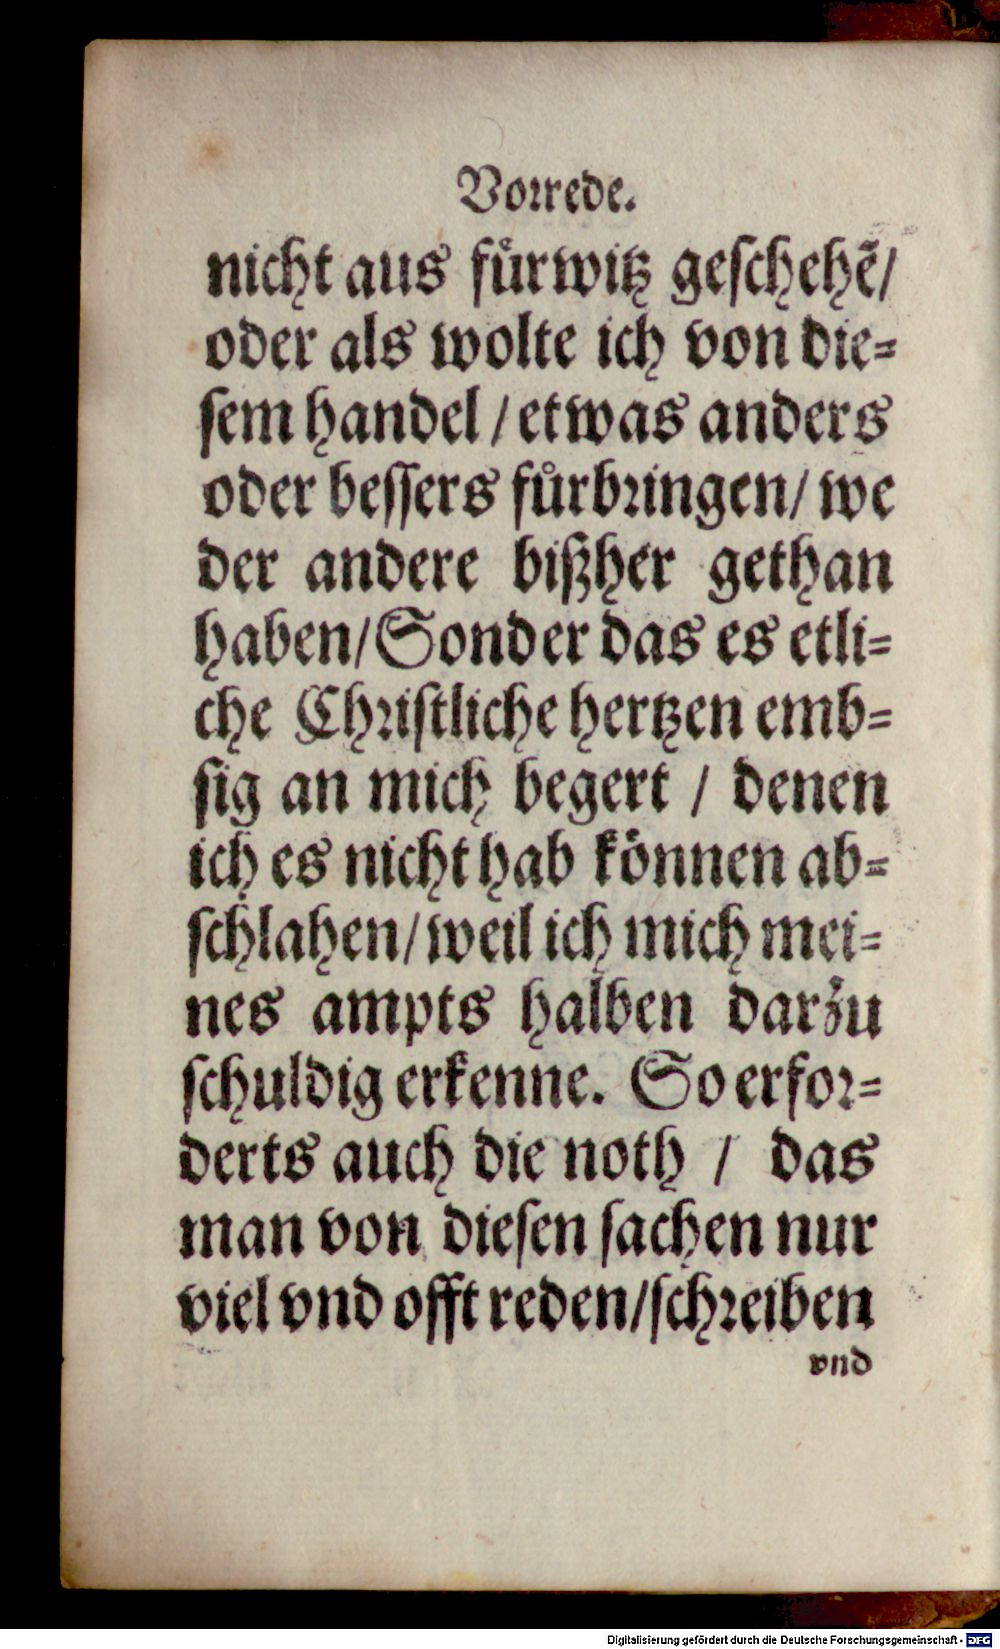 Vorrede.
nicht aus fuͤrwitz geſchehẽ/
oder als wolte ich von die⸗
ſem handel / etwas anders
oder beſſers fuͤrbringen/ we
der andere bißher gethan
haben/ Sonder das es etli⸗
che Chriſtliche hertzen emb⸗
ſig an mich begert / denen
ich es nicht hab koͤnnen ab⸗
ſchlahen/ weil ich mich mei⸗
nes ampts halben darzu
ſchuldig erkenne. So erfor⸗
derts auch die noth / das
man von dieſen ſachen nur
viel vnd offt reden/ ſchreiben
vnd
Digitalisierung gefördert durch die Deutsche Forschungsgemeinschaft - DFG